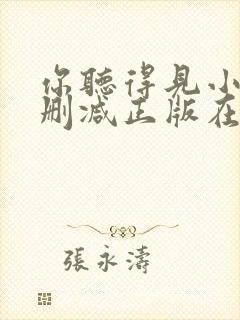 你聽得見小
刪減正版在
張永濤